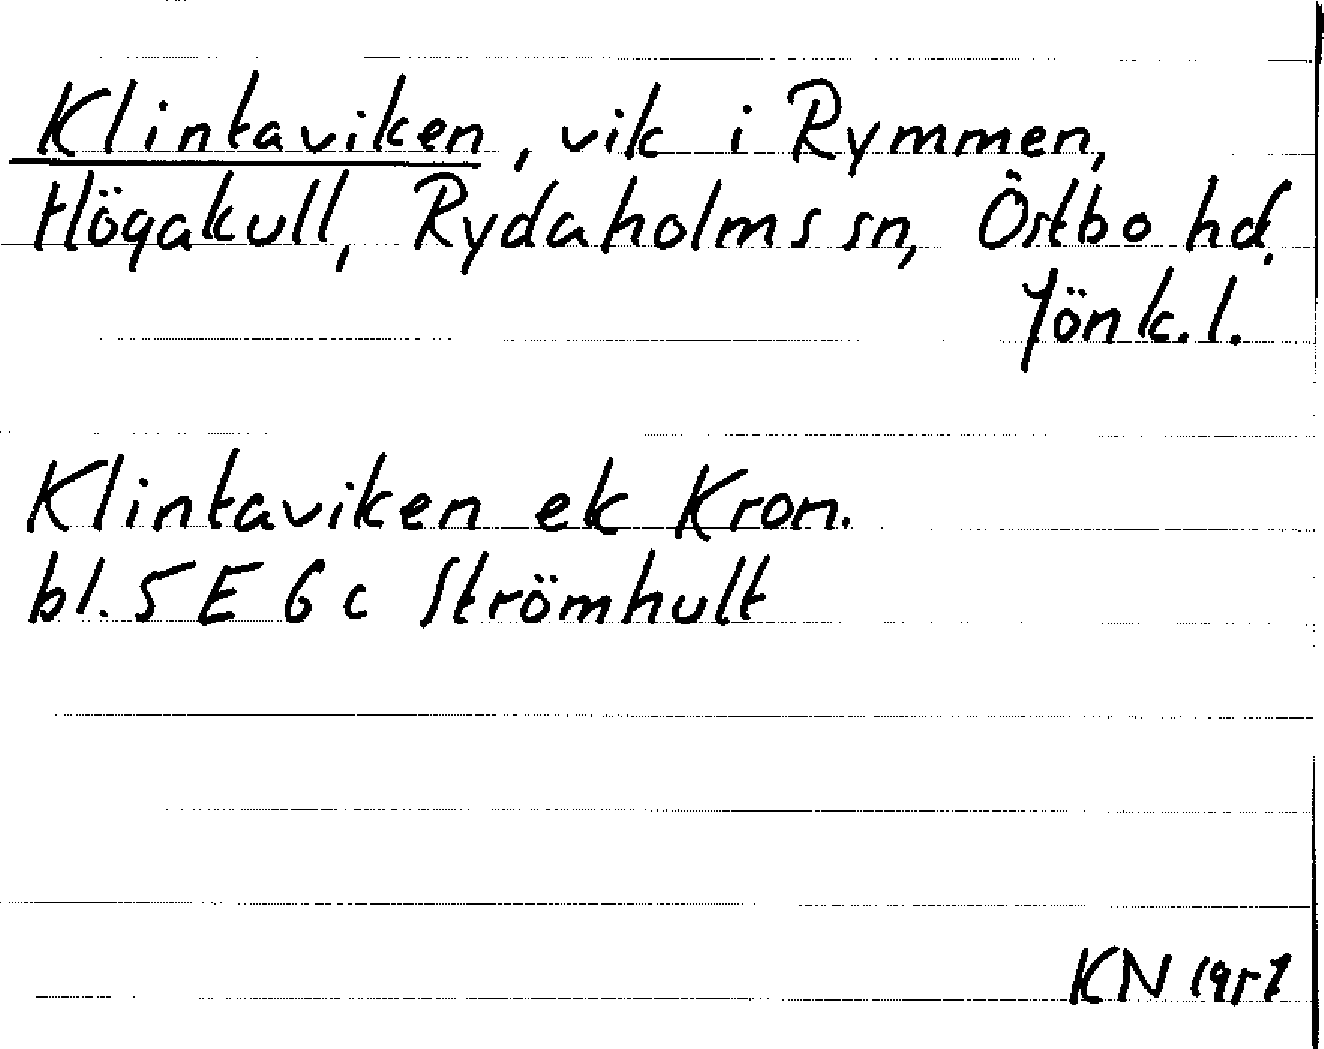 Klintaviken, vik i Rymmen,
Högakull, Rydaholms sn, Östbo hd.
Jönk. l.
Klintaviken ek Kron.
bl. 5 E 6 c Strömhult
KN 1951